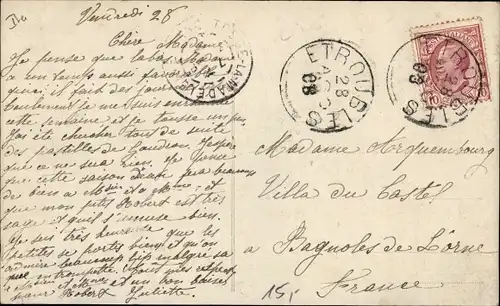 Vendredi 28
Chère Madame
Je pense que là-bas
a un temps aussi
qu'ici, il fait des jours
Seulement je me suis
cette semaine et je tousse un peu
J'ai été chercher tout de suite
des pastilles de Goudron. J'espère
que ce ne sera rien. Je pense
que cette saison d'eau fera beaucoup
de bien à et à et
que mon petit Robert est très
sage et qu'il s'amuse bien.
Je suis très heureuse que les
petites se portes bien et qu'on
admire beaucoup malgré sa
et un bon baiser
pour Robert Juliette
ETROUBLES
28
AGO
08
ETROUBLES
28
08
Madame Arquembourg
Villa du Castel
à Bagnoles de l'Orne
France
15,-